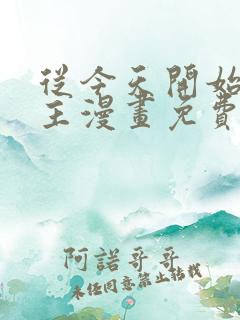 從今天開始
王漫畫免費
阿諾哥哥
未經同意禁止轉載